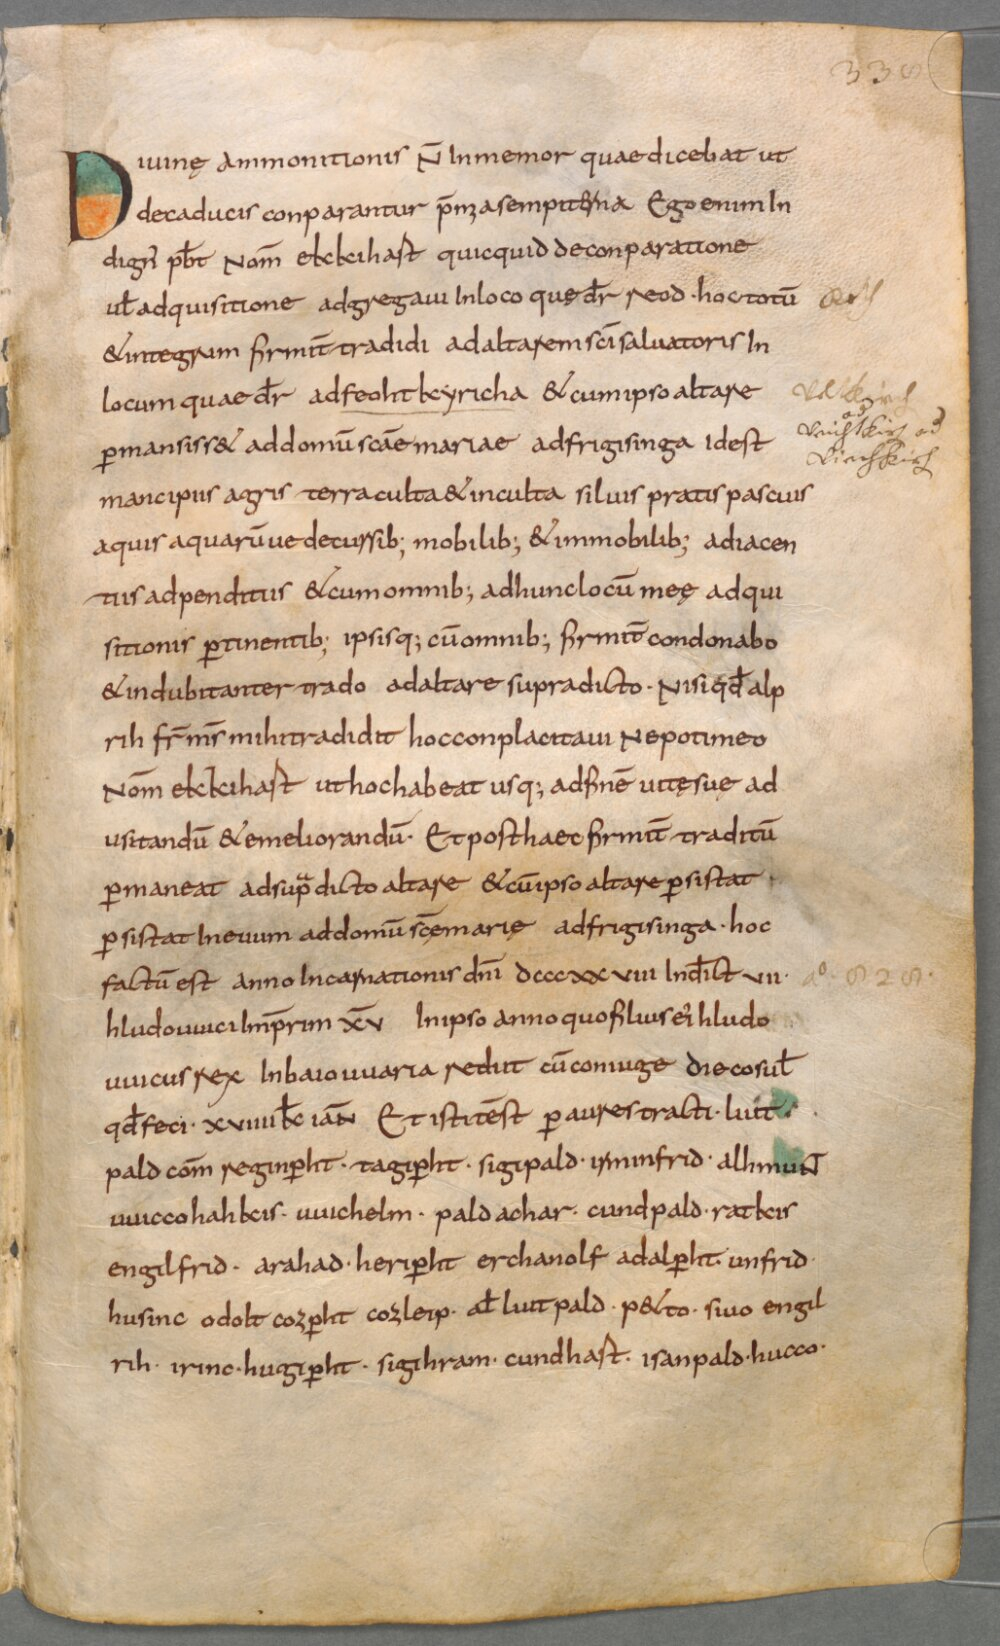 338
Diuinę Ammonitionis N̄ Inmemor quae dicebat ut
de caducis conparantur p̄mia sempiterna Ego enim In
dign̄ pƀt Nom̄ ekkihast quicquid de conparatione
uł adquisitione adgregaui In loco quę dr̄ reod · hoc totū
& integrum firmit̄ tradidi ad altarem sc̄i saluatoris In
locum quae dr̄ ad feoht kyricha & cum ipso altare
p̄mansiss& ad domū sc̄ae mariae ad frigisinga Id est
mancipiis agris terra culta & inculta siluis pratis pascuis
aquis aquarūue decursib; mobilib; & immobilib; adiacen
tiis adpenditiis & cum omnib; ad hunc locū meę adqui
sitionis p̄tinentib; ipsisq; cū omnib; firmit̄ condonabo
& indubitanter trado ad altare supradicto · Nisi qđ alp
rih fr̄ ms̄ mihi tradidit hoc conplacitaui Nepoti meo
Nom̄ ekkihast ut hoc habeat usq; ad finē uitę suę ad
usitandū & emeliorandū · Et post haec firmit̄ traditū
p̄maneat ad sup̄dicto altare & cū ipso altare p̄sistat
p̄sistat In euum ad domū sc̄ę marię ad frigisinga · hoc
factū est anno Incarnationis dn̄i dcccxxviii Indict̄ vii · aº · 828 ·
hludouuici Imp̄rim xv̄ In ipso anno quo filius ei' hludo
uuicus rex In baiouuaria rediit cū coniuge die cosuł
qđ feci · xviiii kł ian̄ Et isti tēst p̄ aures tracti · luit
pald com̄ reginp̄ht · tagip̄ht · sigipald · irminfrid · alhmuN̄
uuicco hahkis · uuichelm · paldachar · cundpald · ratkis
engilfrid · arahad · herip̄ht erchanolf adalp̄ht · unfrid
husinc odolt cozp̄ht cozleip · ał luitpald · p&to · siuo engil
rih · irinc · hugip̄ht · sigihram · cundhast · isanpald · hucco ·